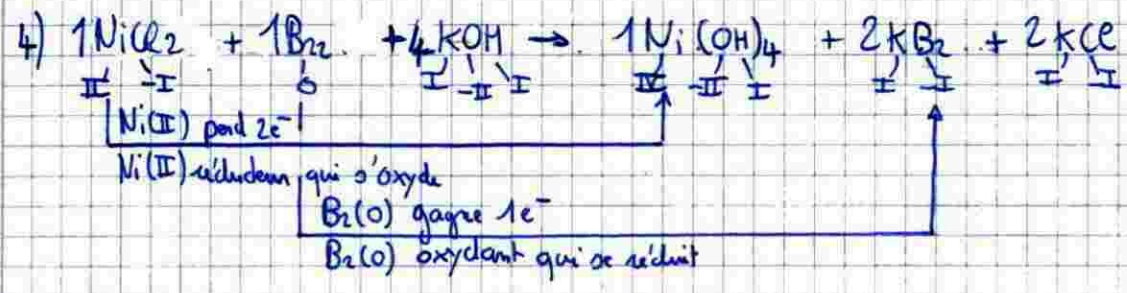 4) 1NiCl2 + 1Br2 . + 4KOH → 1Ni(OH)4 + 2KBr . + 2KCl
II -I 0 I -II I IV -II I I -I I -I
Ni(II) perd 2e-
Ni(II) réducteur qui s'oxyde
Br(0) gagne 1e-
Br(0) oxydant qui se réduit